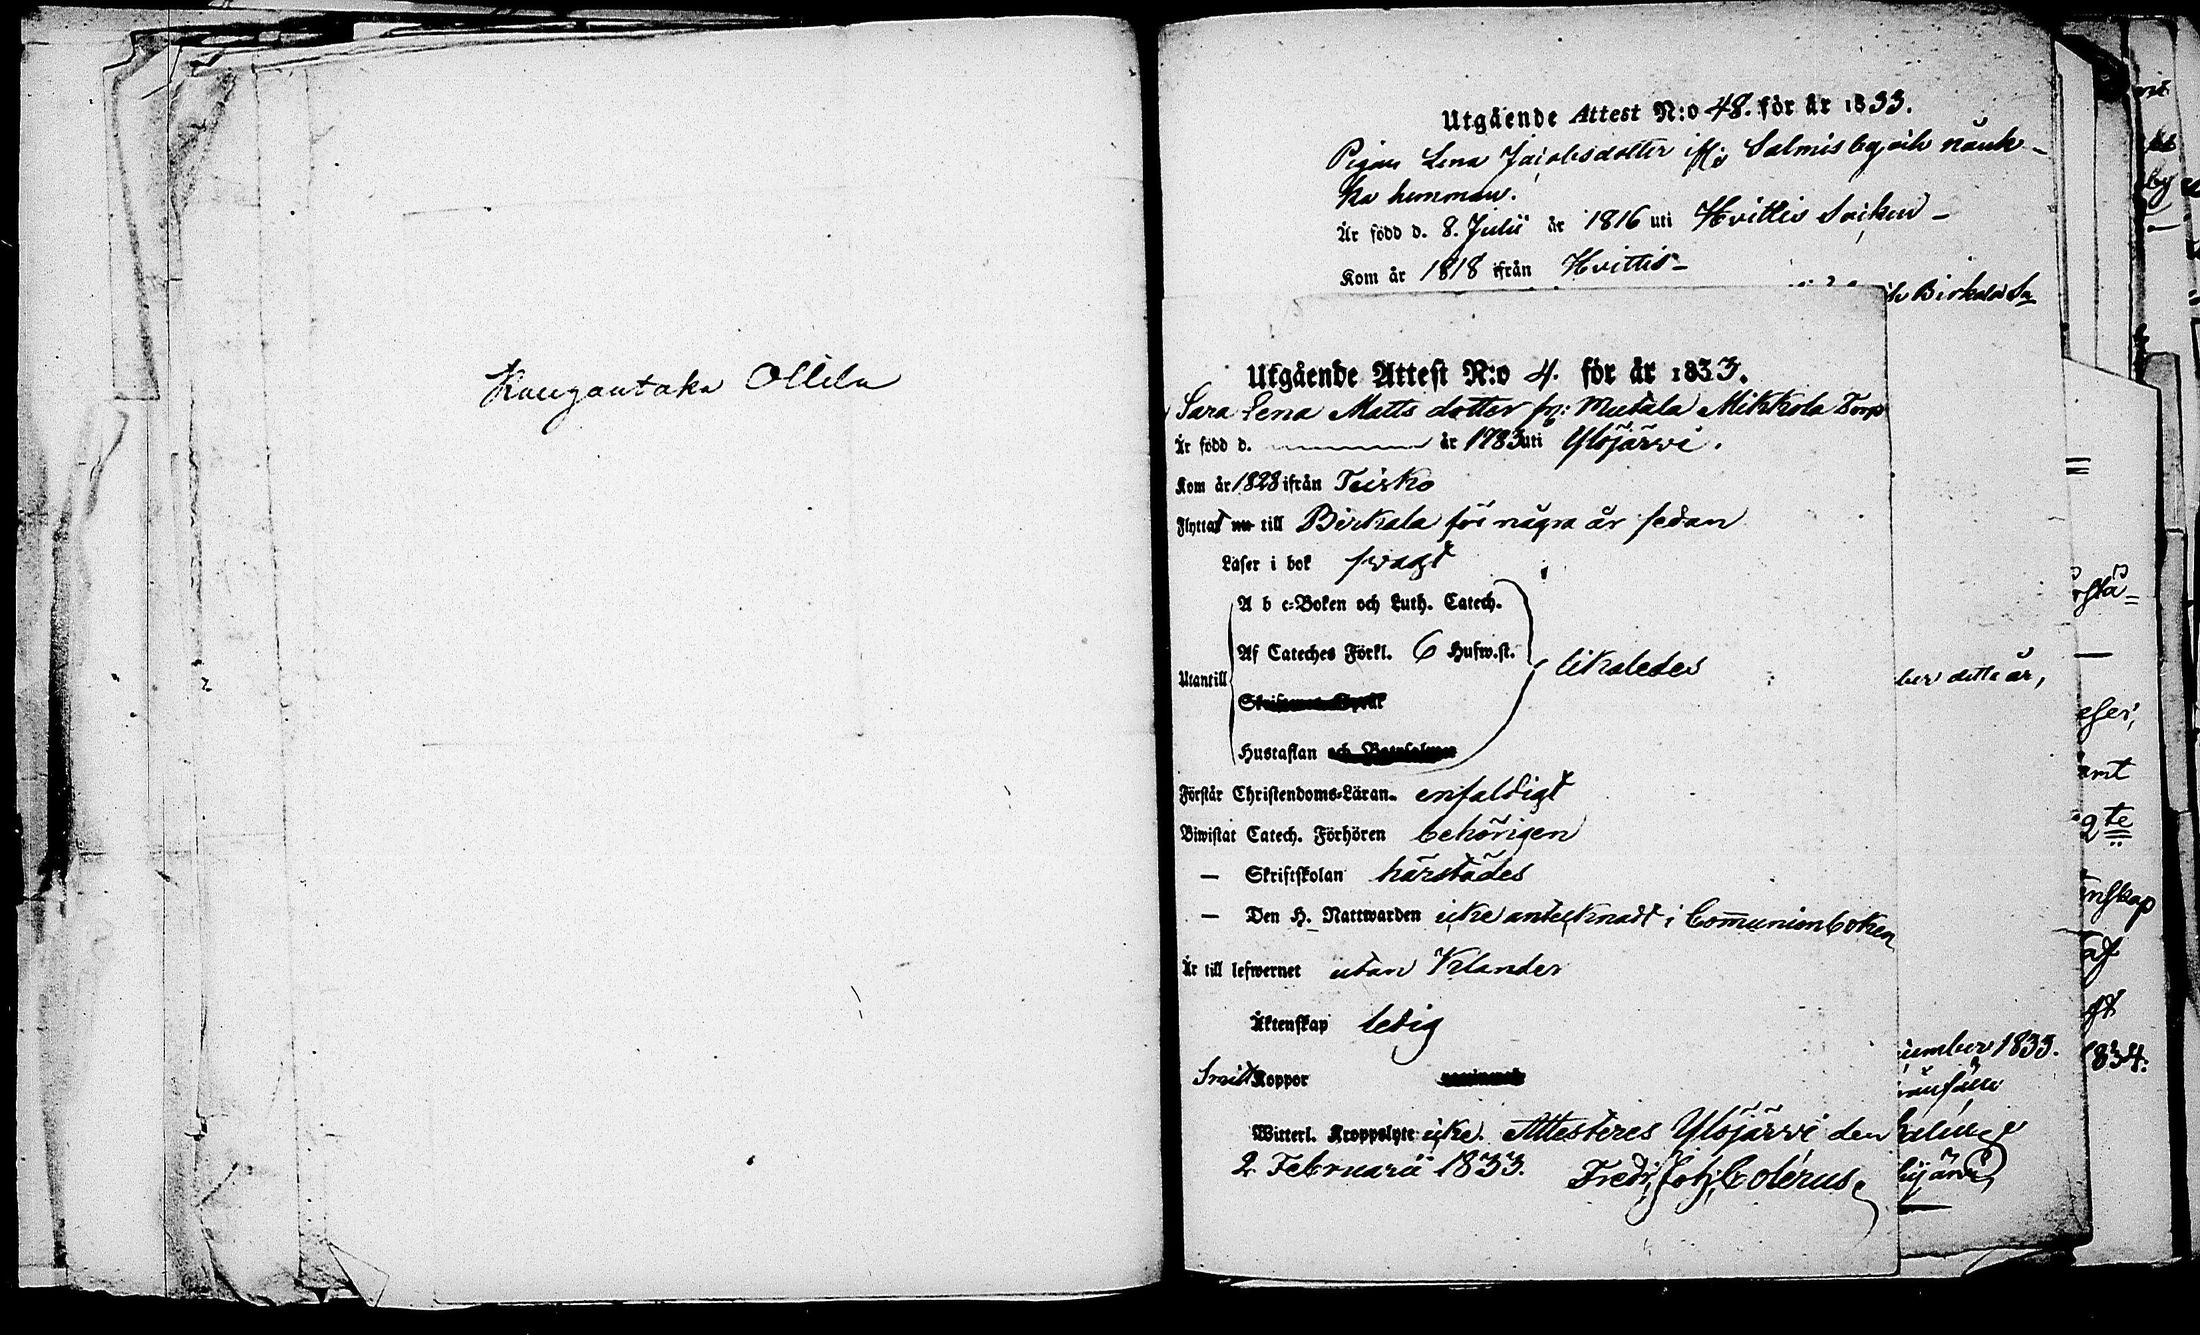 Kangantaka Ollila
Utgående Attest N:o 48. för år 1833.
Pigan Lena Jacobsdotter ifrå Salmis by och nauk-
ka hemman.
Är född d. 8. Julii år 1816 uti Hvittis Soiken -
Kom år 1818 ifrån Hvittis -
Birkala So
Utgående Attest N:o 4. för år 1833.
Sara Lena Matts dotter fr: Mutala Mikkola Torp
Är född d. år 1783 uti Ylöjärvi.
Kom år 1828 ifrån Teisko
Flyttat nu till Birkala för några år sedan
Läser i bok svagt
A b c-Boken och Luth. Catech.
Af Cateches Förkl. 6 Hufw.st.
Utantill likaledes
Hustaflan och
Förstår Christendoms-Läran enfaldigt
Biwistat Catech. Förhören behörigen
— Skriftskolan härstädes
— Den H. Nattwarden icke antecknadt i Communionboken
Är till lefwernet utan Klander
Äktenskap ledig
Koppor
Witterl. Kroppslyte icke. Attesteres Ylöjärvi den
2 Februarii 1833. Fredr. Joh. Colérus
ber dette år,
cember 1833.
1834.
2te